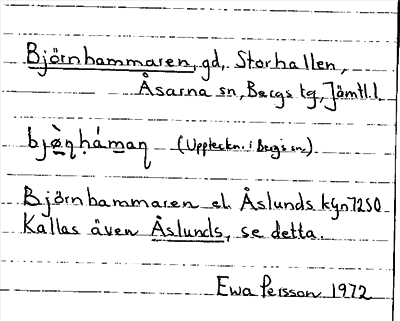 Björnhammaren, gd, Storhallen,
Åsarna sn, Bergs tg, Jämtl.l.
bjø̀ṇḥámaṇ (Uppteckn. i Bergs sn.)
Björnhammaren el. Åslunds kgn7250
Kallas även Åslunds, se detta.
Ewa Persson 1972